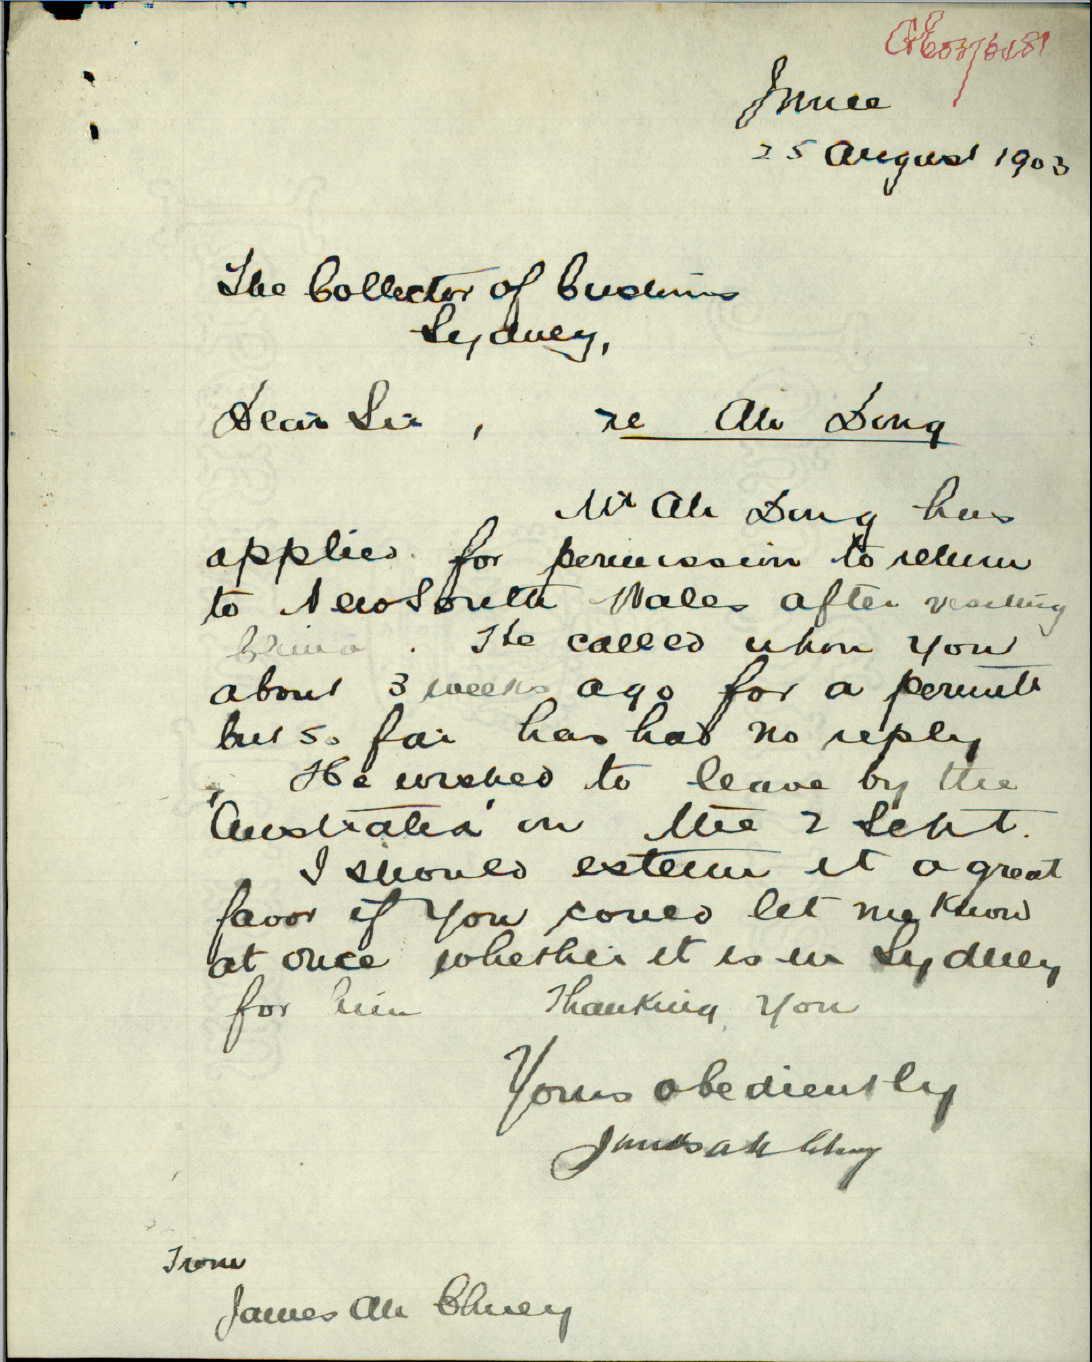 Junee
25 August 1903
The Collector of Customs
Sydney,
Dear Sir, re Ah Dong
Mr Ah Dong has
applied for permission to return
to New South Wales after visiting
China. He called upon you
about 3 weeks ago for a permit
but so far has had no reply
He wished to leave by the
"Australia" on the 2 Sept.
I should esteem it a great
favor if you could let me know
at once whether it is in Sydney
for him Thanking you
Yours obediently
James Ah Chuey
From
James Ah Chuey